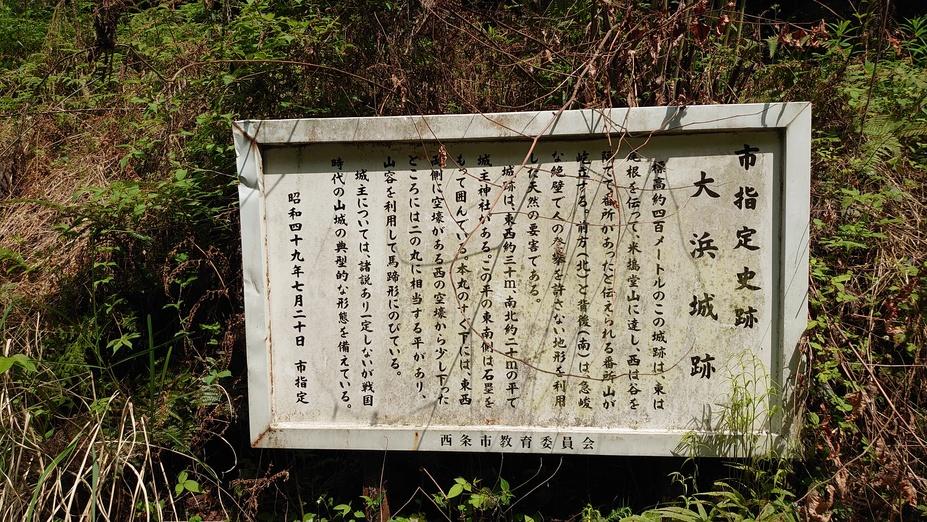 市指定史跡
大浜城跡
標高約四百メートルのこの城跡は、東は
尾根を伝って、米搗堂山に達し、西は谷を
隔てて番所があったと伝えられる番所山が
峙立する。前方(北)と背後(南)は、急峻
な絶壁で人の登攀を許さない地形を利用
した天然の要害である。
城跡は、東西約三十m、南北約二十mの平で
城主神社がある。この平の東南側は石塁を
もって囲んでいる。本丸のすぐ下には、東西
両側に空壕がある西の空壕から少し下った
ところには二の丸に相当する平があり、
山容を利用して馬蹄形にのびている。
城主については、諸説あり一定しないが戦国
時代の山城の典型的な形態を備えている。
昭和四十九年七月二十日 市指定
西条市教育委員会